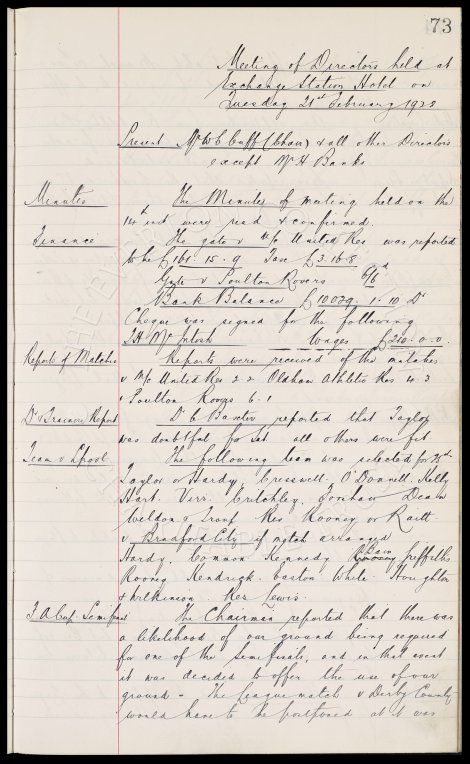 73
Meeting of Directors held at
Exchange Station Hotel on
Tuesday 21st February 1928
Present Mr W C Cuff (Chair) & all other Directors
except Mr H Banks
Minutes The Minutes of meeting held on the
14th inst were read & confirmed.
Finance The gate v M/c United Res was reported
to be £161. 15. 9 Tax £3. 16. 8
Gate v Poulton Rovers 6/6d
Bank Balance £10079. 1. 10 Dr
Cheque was signed for the following
T H McIntosh Wages £210. 0. 0.
Reports of Matches Reports were received of the matches
v M/c United Res 2 2 Oldham Athletic Res 4. 3
v Poulton Rovers 6. 1
Dr v Trainers Report Dr C Baxter reported that Taylor
was doubtful for Sat all others were fit
Team v L'pool The following team was selected for 25th
Taylor or Hardy. Cresswell. O'Donnell. Kelly
Hart. Virr. Critchley. Forshaw Dean
Weldon & Troup. Res Rooney or Raitt.
v Bradford City if match arranged
Hardy. Common Kennedy Bain Griffiths
Rooney Kendrick. Easton White. Houghton
& Wilkinson. Res Lewis.
F A Cup Semi final The Chairman reported that there was
a likelihood of our ground being required
for one of the Semi finals, and in that event
it was decided to offer the use of our
ground - The League match v Derby County
would have to be postponed as it was